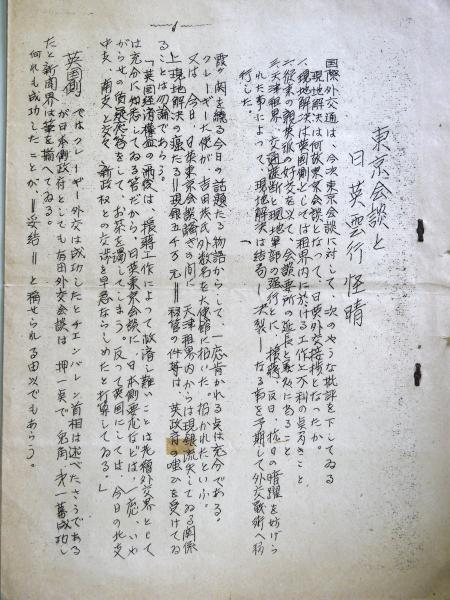 東京会談と
日英雲行怪晴
国際外交通は、今次東京会談に対して、次のやうな批評を下してゐる
現地解決は何故東京会談となつて、日英外交接捗となつたか。
一、現地解決は英国側としては租界内に於ける工作と不利の点多きこと
二、従来の親英派の好交を以て、会談要所の延長と爲
三、天津租界、交通遮断と現地軍部の強行とに、援蒋、反日、抗日の暗躍を妨げら
れた事によつて、現地解決は結局――決裂――なる事を予期して外交戦術へ移
行した。
霞ヶ関を繞る今日の話題たる物語からして、一応肯かれる点は充分である。
クレーギー大使が、吉田茂氏外数名を大使館に招いた。招かれたといふ。
又は、今日、日英東京会談論争の間に、天津租界内からは現銀流失してゐる関係
上現地解決の癌たる＝現銀五千万元＝移管の件等は、英政府の嗤ひを受けてゐ
ることは勿論であらう。
「英国経済権益の前後は、援蒋工作によつて救済し難いことは先輩外交界として
は充分に知悉してゐる筈だから、日英東京会談に、日本側悪化などは、一応、いや
がらせの
をして、お茶を濁してしまう。反つて英国にしては、今日の北支
中支、南支と交々、新政权との交渉を早急ならしめたと打算してゐる。」
英国側
ではクレーギー外交は成功したとチエンバレン首相は述べたさうである
が日本側政府としても有田外交会談は、押一点で、名角、才一幕成功し
たと新聞界は筆を揃へてゐる。
何れも成功したことが、＝妥結＝と称せられる由以でもあらう。